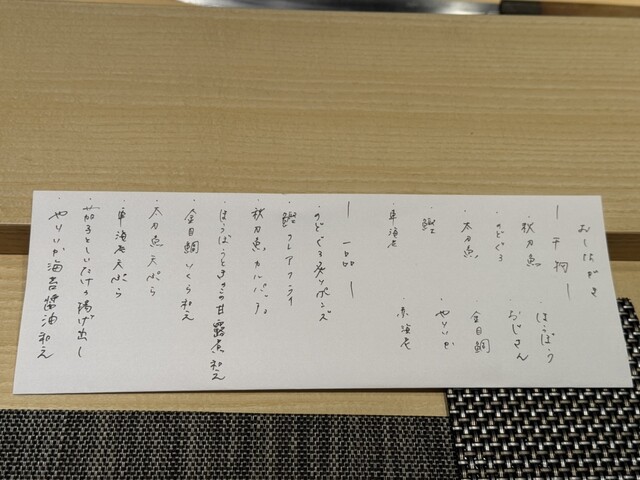 おしながき
― 干物 ―
秋刀魚
ほうぼう
のどぐろ
おじさん
太刀魚
金目鯛
鰹
やりいか
車海老
赤海老
― 一品 ―
のどぐろ炙りポンズ
鰹レアフライ
秋刀魚カルパッチョ
ほうぼうときのこの甘露煮和え
金目鯛いくら和え
太刀魚天ぷら
車海老天ぷら
茄子としいたけの揚げ出し
やりいか海苔醤油和え